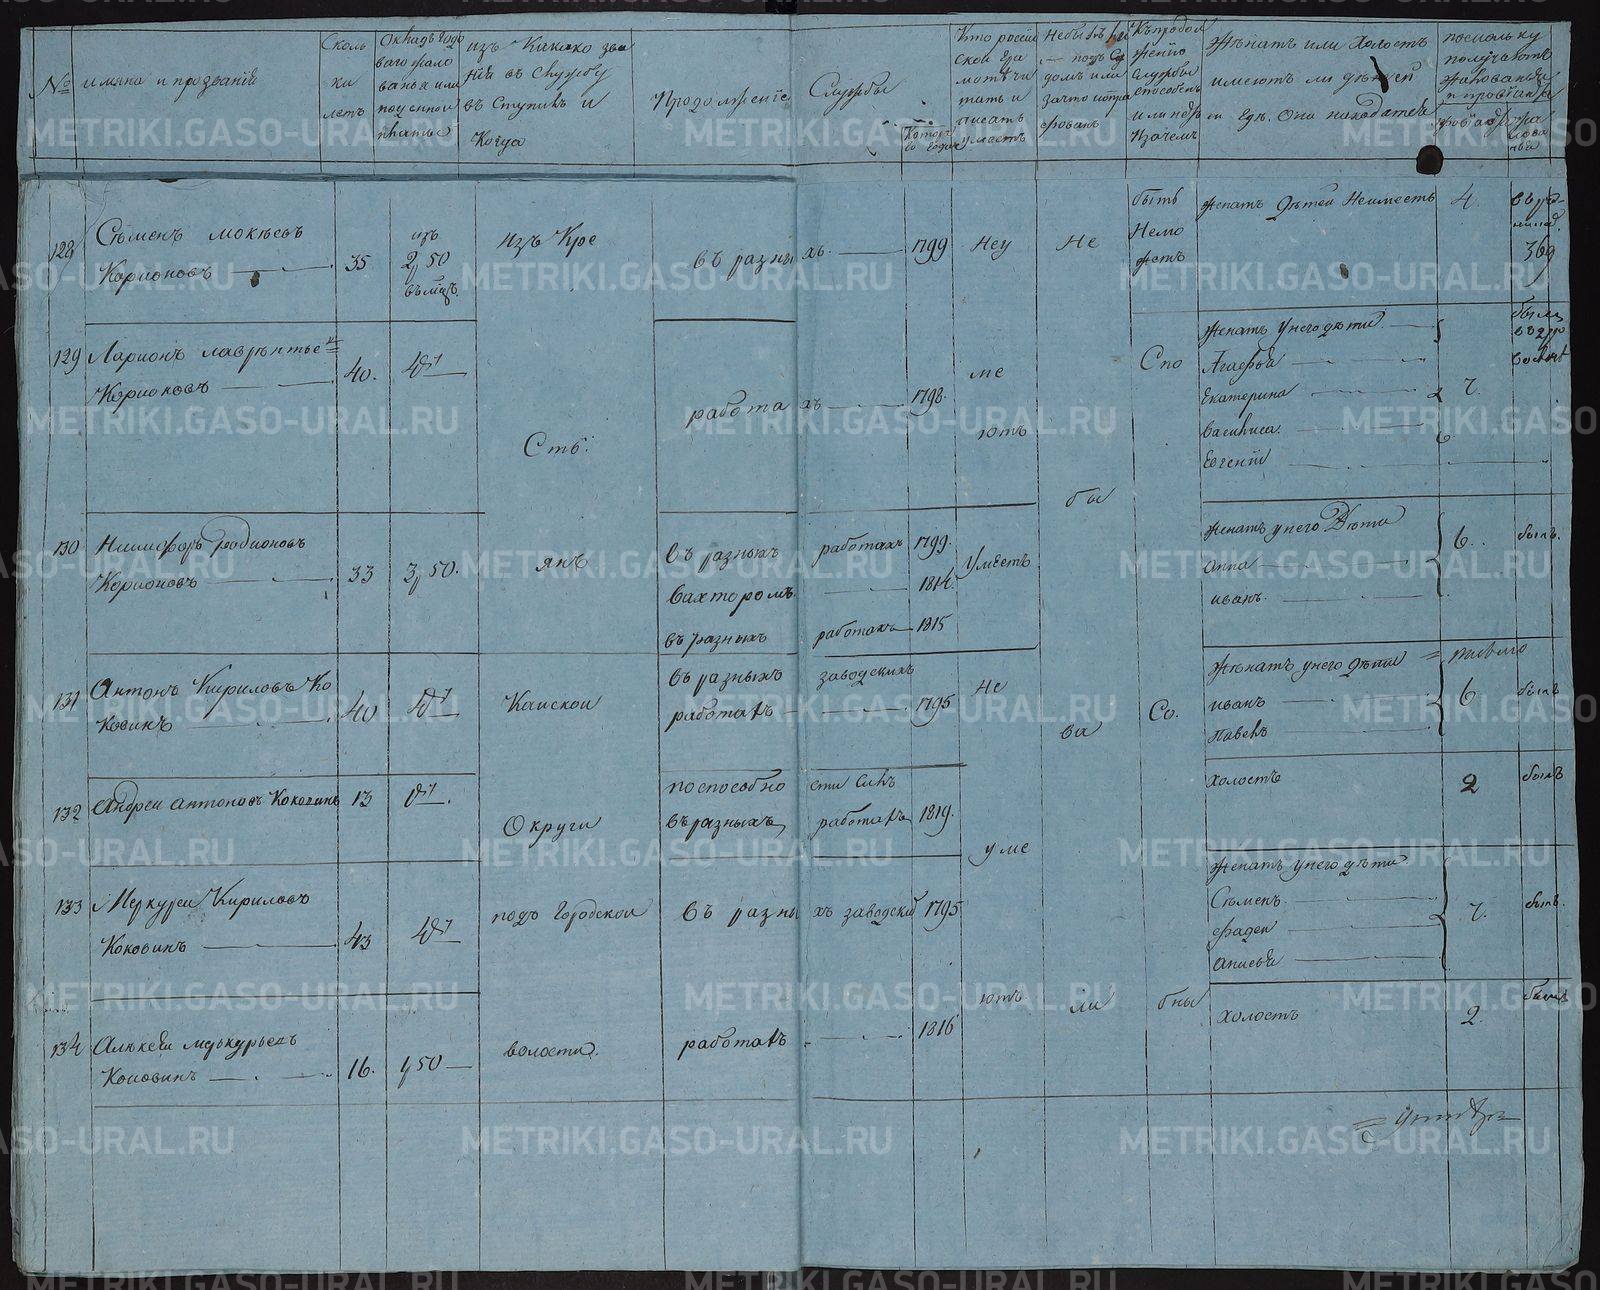 № имяна и прозвании
Сколь
ко
летъ
Окладъ годо
ваго жало
ванья или
поденной
платы
изъ Какако зва
нія въ Службу
въ Ступилъ и
Когда
Продолженіе
Службы
Котора
го года
Кто россій
ской гра
моте чи
тать и
писать
умеетъ
Небылъ ли
подъ Су
домъ или
за что
Къ продол
женію
Службы
Способенъ
или нетъ
и зачемъ
Женатъ или Холостъ
имеютъ ли детей
и где они находятся
поскольку
получаютъ
жалованья
и провіанта
128
Семенъ мокеевъ
Карионовъ
35
2 50
изъ Кре
въ разны хъ
1799
Неу
Не
быть
Немо
жетъ
женатъ детей Неимеетъ
4.
129
Ларионъ лаврентье
Карионовъ
40.
Ств:
работа хъ
1798.
ме
ютъ
Спо
женатъ унего дети
Агафья
Екатерина
василиса.
Евгении
7.
130
Никифоръ родионовъ
Карионовъ
33
3, 50.
янъ
въ разныхъ работахъ 1799.
вахторомъ 1814.
въ разныхъ работахъ 1815
Умеетъ
бы
женатъ унего Дети
анна
иванъ.
6.
былъ.
131
Антонъ Кириловъ Ко
Ковинъ
40
Каиской
въ разныхъ заводскихъ
работахъ 1795
Не
ва
Со.
женатъ унего дети
иванъ
павелъ
6
былъ
132
Андреи антоновъ Коковинъ
13
Округи
поспособно сти Силъ
въ разныхъ работахъ 1819.
уме
холостъ
2
былъ
133
Меркуреи Кириловъ
Коковинъ
43
подъ Городской
въ разны хъ заводски 1795
женатъ унего дети
Семенъ
фадеи
анисья
7.
былъ.
134
Алексеи меркурьевъ
Коковинъ
16.
1, 50
волости.
работахъ
1816
ютъ
ли
бны
холостъ
2.
былъ
METRIKI.GASO-URAL.RU